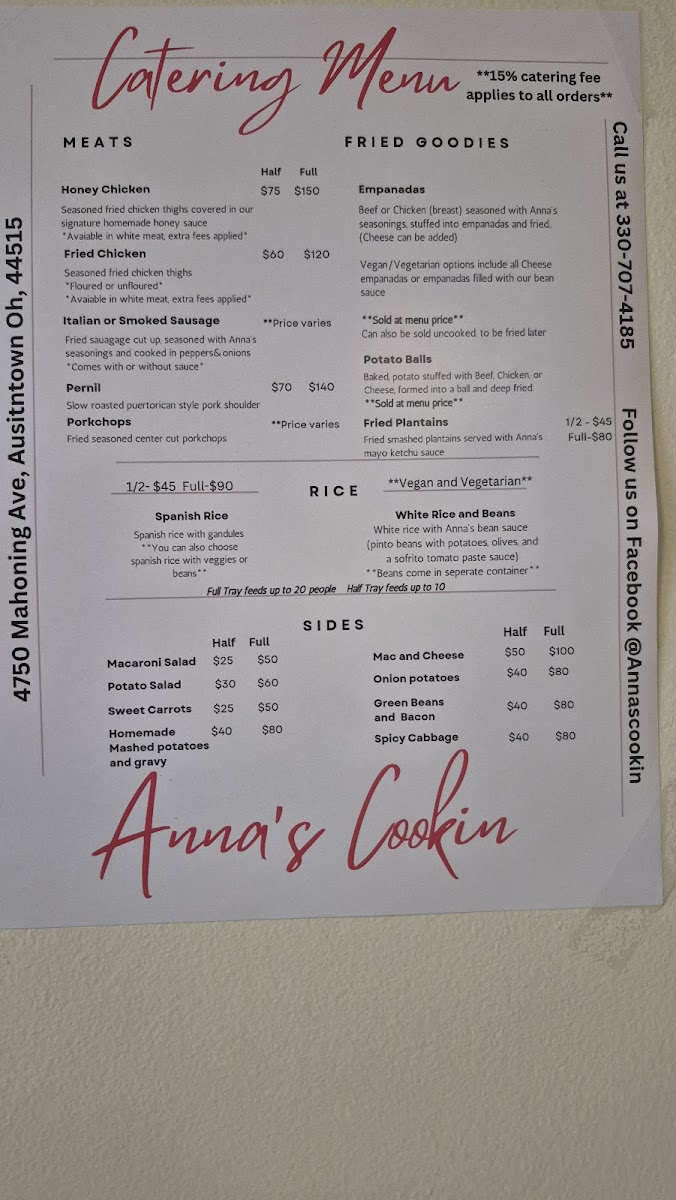 Catering Menu
**15% catering fee
applies to all orders**
MEATS
Half Full
Honey Chicken $75 $150
Seasoned fried chicken thighs covered in our
signature homemade honey sauce
*Avaiable in white meat, extra fees applied*
Fried Chicken $60 $120
Seasoned fried chicken thighs
*Floured or unfloured*
*Avaiable in white meat, extra fees applied*
Italian or Smoked Sausage **Price varies
Fried sauagage cut up, seasoned with Anna's
seasonings and cooked in peppers& onions
*Comes with or without sauce*
Pernil $70 $140
Slow roasted puertorican style pork shoulder
Porkchops **Price varies
Fried seasoned center cut porkchops
FRIED GOODIES
Empanadas
Beef or Chicken (breast) seasoned with Anna's
seasonings, stuffed into empanadas and fried.
(Cheese can be added)
Vegan/Vegetarian options include all Cheese
empanadas or empanadas filled with our bean
sauce
**Sold at menu price**
Can also be sold uncooked, to be fried later
Potato Balls
Baked potato stuffed with Beef, Chicken, or
Cheese, formed into a ball and deep fried
**Sold at menu price**
Fried Plantains 1/2 - $45
Fried smashed plantains served with Anna's Full-$80
mayo ketchu sauce
1/2- $45 Full-$90
RICE
**Vegan and Vegetarian**
Spanish Rice
Spanish rice with gandules
**You can also choose
spanish rice with veggies or
beans**
White Rice and Beans
White rice with Anna's bean sauce
(pinto beans with potatoes, olives, and
a sofrito tomato paste sauce)
**Beans come in seperate container**
Full Tray feeds up to 20 people Half Tray feeds up to 10
SIDES
Half Full
Macaroni Salad $25 $50
Potato Salad $30 $60
Sweet Carrots $25 $50
Homemade $40 $80
Mashed potatoes
and gravy
Half Full
Mac and Cheese $50 $100
Onion potatoes $40 $80
Green Beans $40 $80
and Bacon
Spicy Cabbage $40 $80
Anna's Cookin
4750 Mahoning Ave, Ausitntown Oh, 44515
Call us at 330-707-4185 Follow us on Facebook @Annascookin